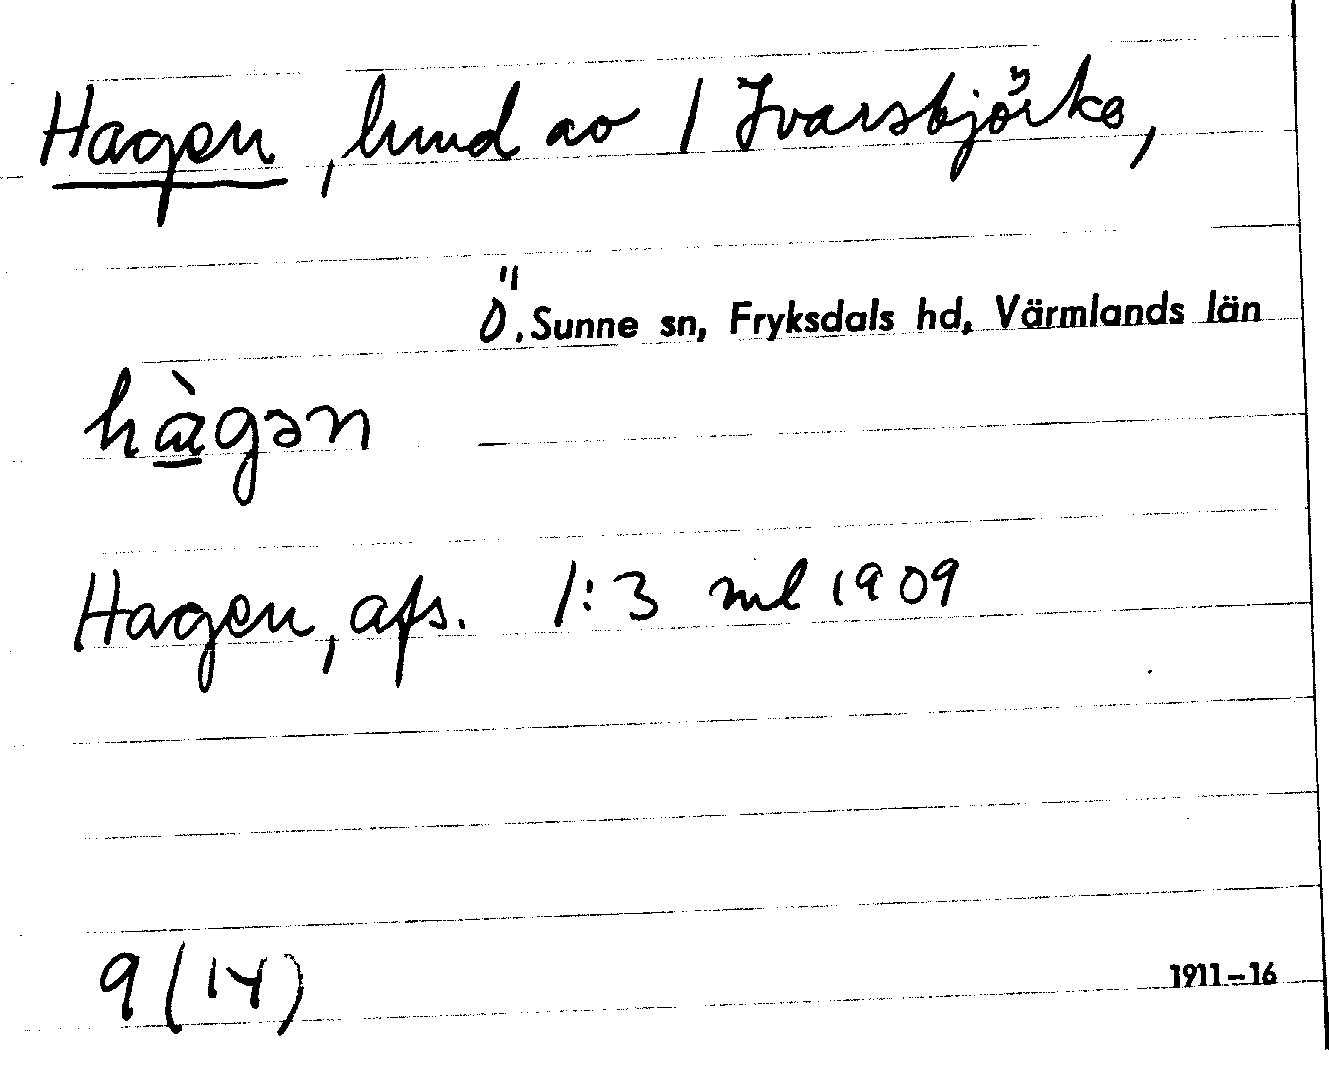 Hagen, lund av 1 Ivarsbjörke,
Ö. Sunne sn, Fryksdals hd, Värmlands län
hàgən
Hagen, afs. 1:3 ml 1909
9 (14)
1911–16